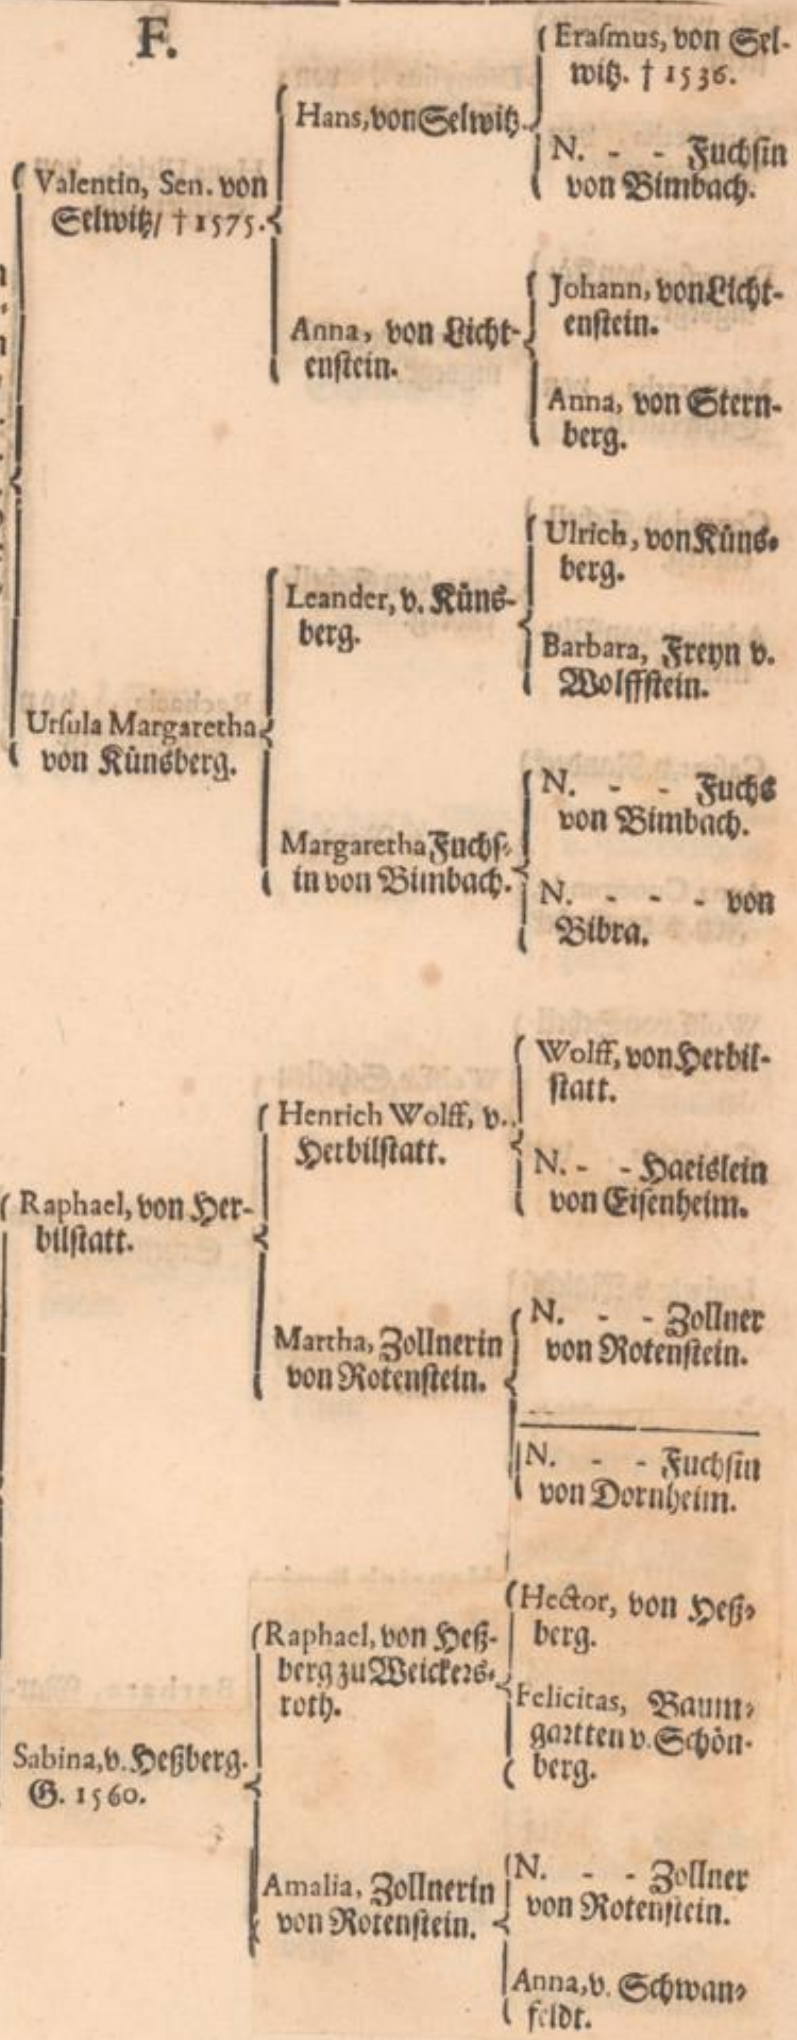 F.
Valentin, Sen. von
Selwitz/ † 1575.
Ursula Margaretha
von Künsberg.
Raphael, von Her-
bilstatt.
Sabina, v. Heßberg.
G. 1560.
Hans, von Selwitz.
Anna, von Licht-
enstein.
Leander, v. Küns-
berg.
Margaretha Fuchs-
in von Bimbach.
Henrich Wolff, v.
Herbilstatt.
Martha, Zollnerin
von Rotenstein.
Raphael, von Heß-
berg zu Weickers-
roth.
Amalia, Zollnerin
von Rotenstein.
Erasmus, von Sel-
witz. † 1536.
N. - - Fuchsin
von Bimbach.
Johann, von Licht-
enstein.
Anna, von Stern-
berg.
Ulrich, von Küns-
berg.
Barbara, Freyn v.
Wolffstein.
N. - - Fuchs
von Bimbach.
N. - - - von
Bibra.
Wolff, von Herbil-
statt.
N. - - Haeislein
von Eisenheim.
N. - - Zollner
von Rotenstein.
N. - - Fuchsin
von Dornheim.
Hector, von Heß-
berg.
Felicitas, Baum-
gartten v. Schön-
berg.
N. - - Zollner
von Rotenstein.
Anna, v. Schwan-
feldt.